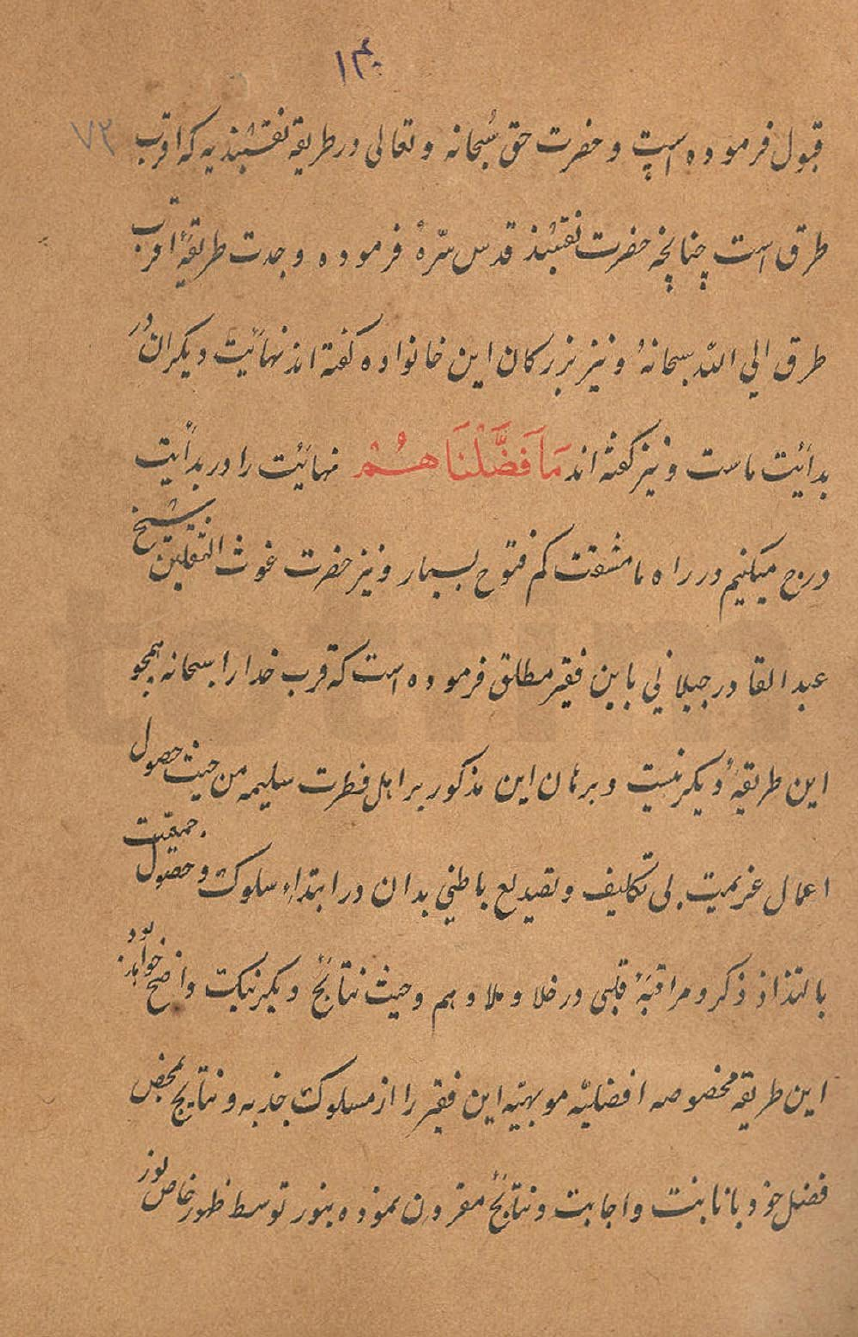 ۱۴۰
۷۲
قبول فرموده است و حضرت حق سبحانه و تعالی در طریقه نقشبندیه که اقرب
طرق است چنانچه حضرت نقشبند قدس سرهٔ فرموده وجدت طریقهٔ اقرب
طرق الي الله سبحانهٔ و نیز بزرکان این خانواده کفته اند نهائیت دیکران در
بدائیت ماست و نیز کفته اند مَا فَضَّلْنَا هُمْ نهائیت را در بدأیت
درج میکنیم در راه ما مشقت کم فتوح بسیار و نیز حضرت غوث الثقلین شیخ
عبد القادر جیلاني باین فقیر مطلق فرموده است که قرب خدا را سبحانه همچو
این طریقهٔ دیکر نیست و برهان این مذکور بر اهل فطرت سلیمه من حیث حصول
اعمال عزیمیت بی تکلیف و تصدیع باطني بدان در ابتداء سلوک و حصول جمعیت
بالتذاذ ذکر و مراقبهٔ قلبی در خلا و ملا و هم و حیث نتایج دیکر نیک واضح خواهد بود
این طریقه مخصوصه افضلیّه موبهیّه این فقیر را از مسلوک جذبه و نتایج بمحض
فضل خود بانابت و اجابت و نتایج مقرون نموده بنور توسط ظهور خاص نور